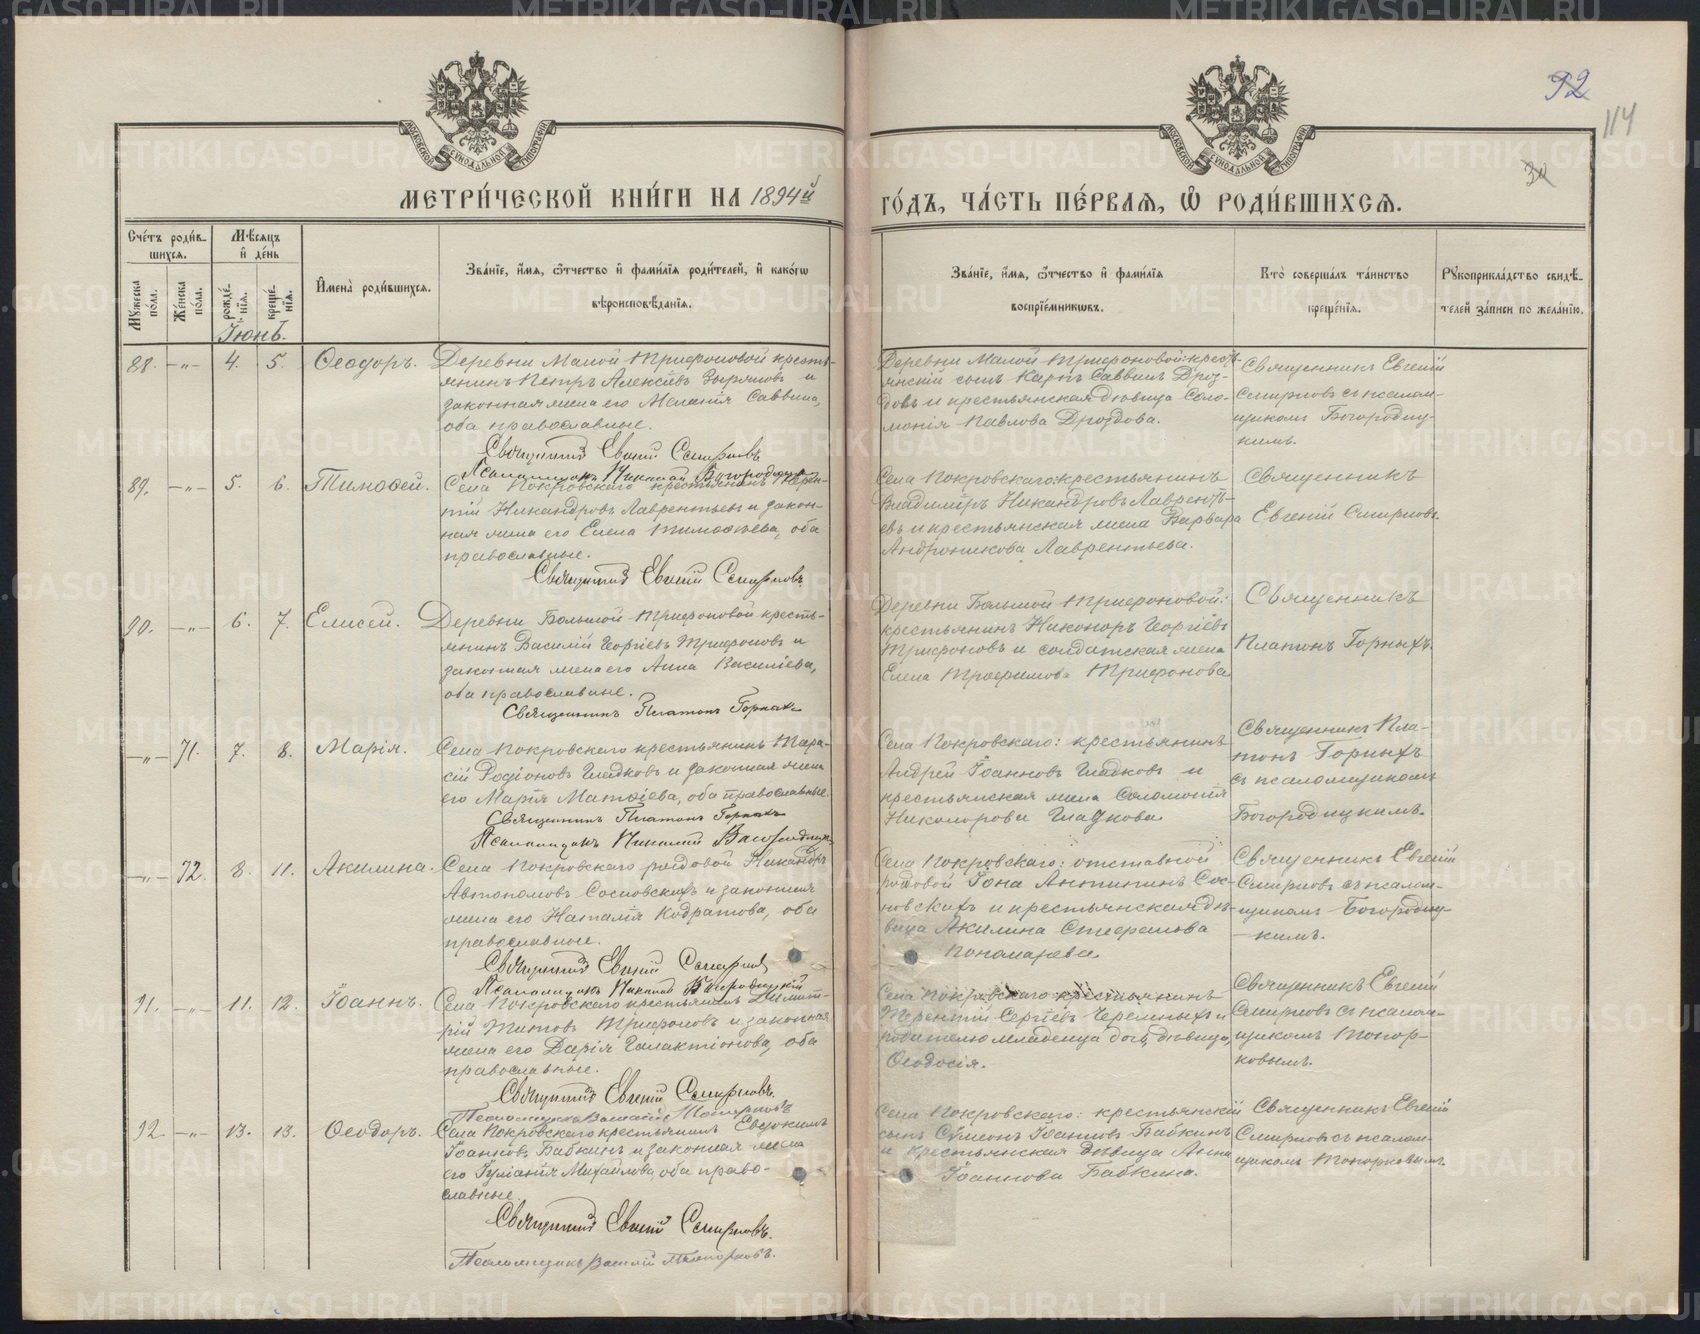 92
114
30
МОСКОВСКОЙ СѴНОДАЛЬНОЙ ТИПОГРАФІИ
МОСКОВСКОЙ СѴНОДАЛЬНОЙ ТИПОГРАФІИ
МЕТРИ́ЧЕСКОЙ КНИ́ГИ НА 1894й
ГО́ДЪ, ЧА́СТЬ ПЕ́РВАЯ, Ѽ РОДИ́ВШИХСЯ.
Сче́тъ роди́в-
шихся.
Мѣ́сяцъ
и де́нь
Му́жеска
по́ла.
Же́нска
по́ла.
рожде́-
нїя.
креще́-
нїя.
Имена̀ роди́вшихся.
Зва́нїе, и́мя, ѻ҆́тчество и фами́лїя роди́телей, и како́гѡ
вѣроисповѣ́данїя.
Зва́нїе, и́мя, ѻ҆́тчество и фами́лїя
воспрїе́мниковъ.
Кто̀ соверша́лъ та́инство
креще́нїя.
Рꙋкоприкла́дство свидѣ́-
телей за́писи по жела́нїю.
Іюнь.
88. —„— 4. 5. Ѳеодоръ.
Деревни Малой Трифоновой кресть-
янинъ Петръ Алексѣевъ Зыряновъ и
законная жена его Меланія Саввина,
оба православные.
Священникъ Евгеній Смирновъ
Псаломщикъ Николай Богородицкій
Деревни Малой Трифоновой: кресть-
янскій сынъ Карпъ Саввинъ Дроз-
довъ и крестьянская дѣвица Соло-
монія Павлова Дроздова.
Священникъ Евгеній
Смирновъ съ псалом-
щикомъ Богородиц-
кимъ.
89. —„— 5. 6. Тимоѳей.
Села Покровскаго крестьянинъ
Никандровъ Лаврентьевъ и закон-
ная жена его Елена Тимоѳѣева, оба
православные.
Священникъ Евгеній Смирновъ.
Села Покровскаго: крестьянинъ
Владиміръ Никандровъ Лаврентъ-
евъ и крестьянская жена Варвара
Андроникова Лаврентьева.
Священникъ
Евгеній Смирновъ.
90. —„— 6. 7. Елисей.
Деревни Большой Трифоновой кресть-
янинъ Василій Георгіевъ Трифоновъ и
законная жена его Анна Василіева,
оба православные.
Священникъ Платонъ Горныхъ
Деревни Большой Трифоновой:
крестьянинъ Никоноръ Георгіевъ
Трифоновъ и солдатская жена
Елена Трофимова Трифонова
Священникъ
Платонъ Горныхъ.
—„— 71. 7. 8. Марія.
Села Покровскаго крестьянинъ Тара-
сій Родіоновъ Гладковъ и законная жена
его Марія Матѳіева, оба православные.
Священникъ Платонъ Горныхъ
Псаломщикъ Николай Богородицкій
Села Покровскаго: крестьянинъ
Андрей Іоанновъ Гладковъ и
крестьянская жена Соломонія
Никонорова Гладкова
Священникъ Пла-
тонъ Горныхъ
съ псаломщикомъ
Богородицкимъ.
—„— 72. 8. 11. Акилина.
Села Покровскаго рядовой Никандръ
Автономовъ Сосновскихъ и законная
жена его Наталія Кодратова, оба
православные.
Священникъ Евгеній Смирновъ
Псаломщикъ Николай Богородицкій
Села Покровскаго: отставной
рядовой Іона Антипинъ Сос-
новскихъ и крестьянская дѣ-
вица Акилина Стефанова
Пономарева
Священникъ Евгеній
Смирновъ съ псалом-
щикомъ Богородиц-
кимъ.
91. —„— 11. 12. Іоаннъ.
Села Покровскаго крестьянинъ Димит-
рій Титовъ Трифоновъ и законная
жена его Дарія Галактіонова, оба
православные.
Священникъ Евгеній Смирновъ.
Псаломщикъ Василій Топорковъ
Села Покровскаго: крестьянинъ
Терентій Сергіевъ Черемныхъ и
родителю младенца дочь, дѣвица,
Ѳеодосія.
Священникъ Евгеній
Смирновъ съ псалом-
щикомъ Топор-
ковымъ.
92. —„— 13. 13. Ѳеодоръ.
Села Покровскаго крестьянинъ Евдокимъ
Іоанновъ Бабкинъ и законная жена
его Іуліанія Михайлова, оба право-
славные.
Священникъ Евгеній Смирновъ.
Псаломщикъ Василій Топорковъ.
Села Покровскаго: крестьянскій
сынъ Сѵмеонъ Іоанновъ Бабкинъ
и крестьянская дѣвица Анна
Іоаннова Бабкина.
Священникъ Евгеній
Смирновъ съ псалом-
щикомъ Топорковымъ.
METRIKI.GASO-URAL.RU